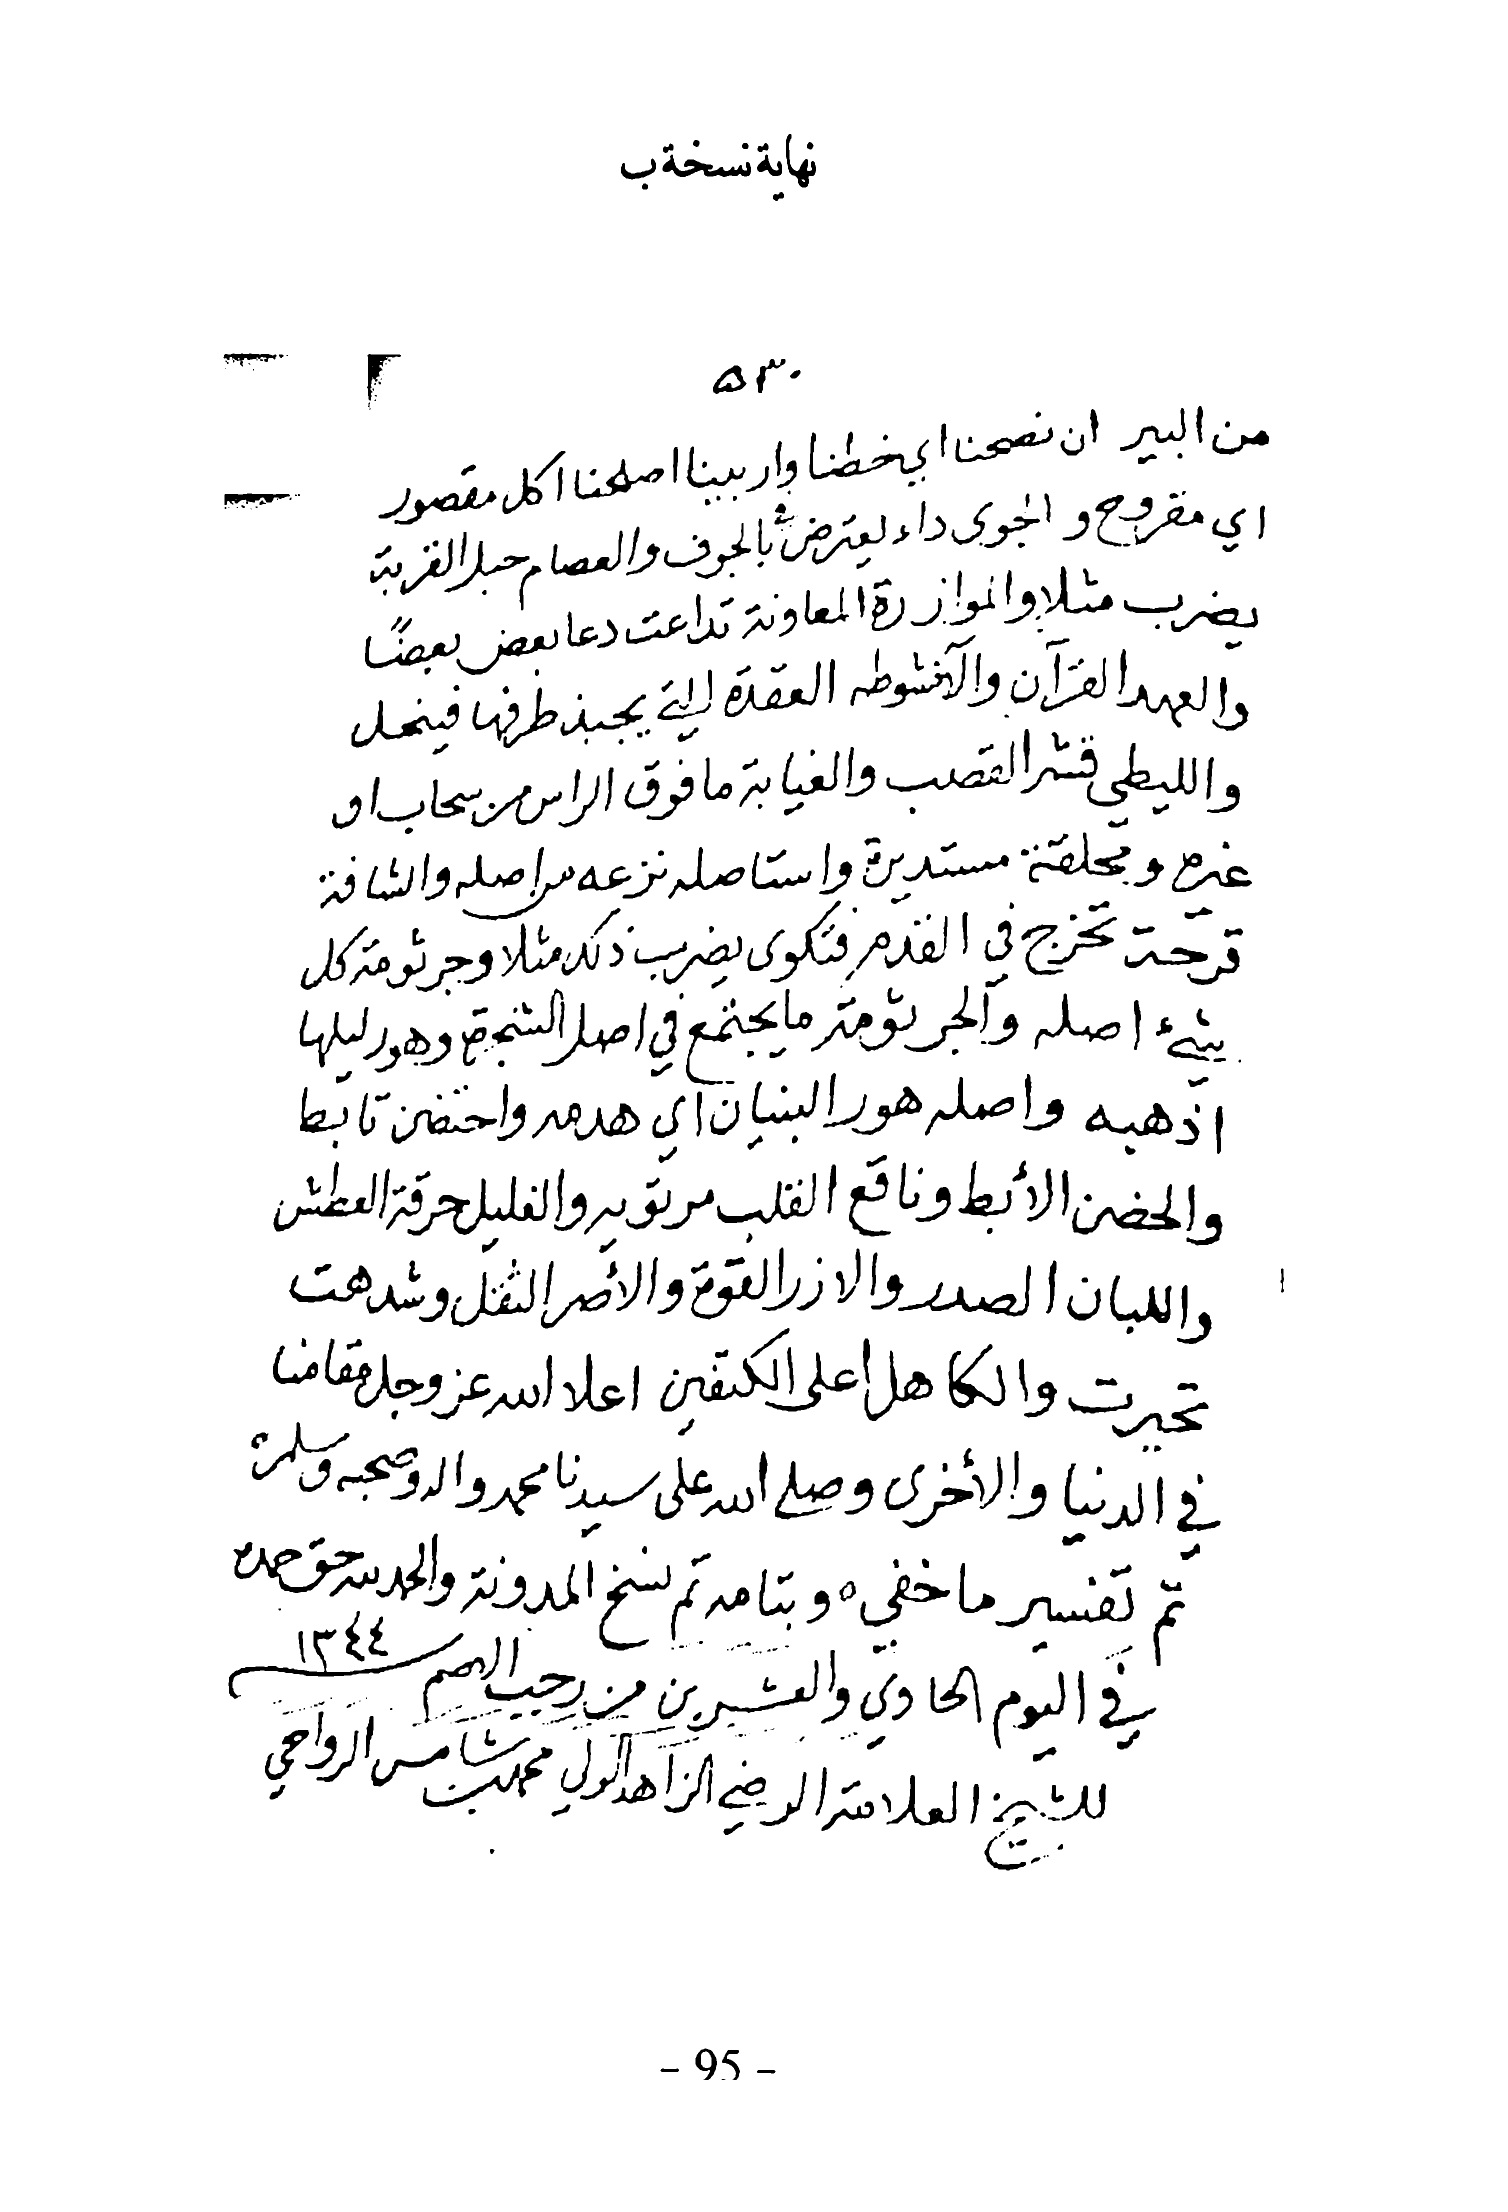 نهاية نسخة ب
٥٣٠
من البير ان نصحنا اي خطنا واربينا اصلحنا اكل مقصور
اي مقروح والجوى داء يعترض في بالجوف والعصام حبل القربة
يضرب مثلا والموازرة المعاونة تداعت دعا بعض بعضًا
والعهد القرآن والآنشوطه العقدة التي يجبذ طرفها فينحل
والليطي قشر القصب والغيابة ما فوق الراس من سحاب او
غيره ومحلقة مستديرة واستاصله نزعه من اصله والشافة
قرحة تخرج في القدم فتكوى يضرب ذلك مثلا وجرثومة كل
شيء اصله والجرثومة ما يجتمع في اصل الشجرة وهور ليلها
اذهبه واصله هور البنيان اي هدمه واحتضن تابط
والحضن الأبط وناقع القلب مرتويه والغليل حرقة العطش
واللبان الصدر والازر القوة والأصر الثقل وشدهت
تحيرت والكاهل اعلى الكتفين اعلا الله عز وجل مقامنا
في الدنيا والأخرى وصلى الله على سيدنا محمد واله وصحبه وسلم ه
تم تفسير ما خفي ه وبتامه تم نسخ المدونة والحمد لله حق حمده
في اليوم الحادي والعشرين من رجب الاصم ١٣٤٤
للشيخ العلامة الرضي الزاهد الولي محمد بن شامس الرواحي
- 95 -